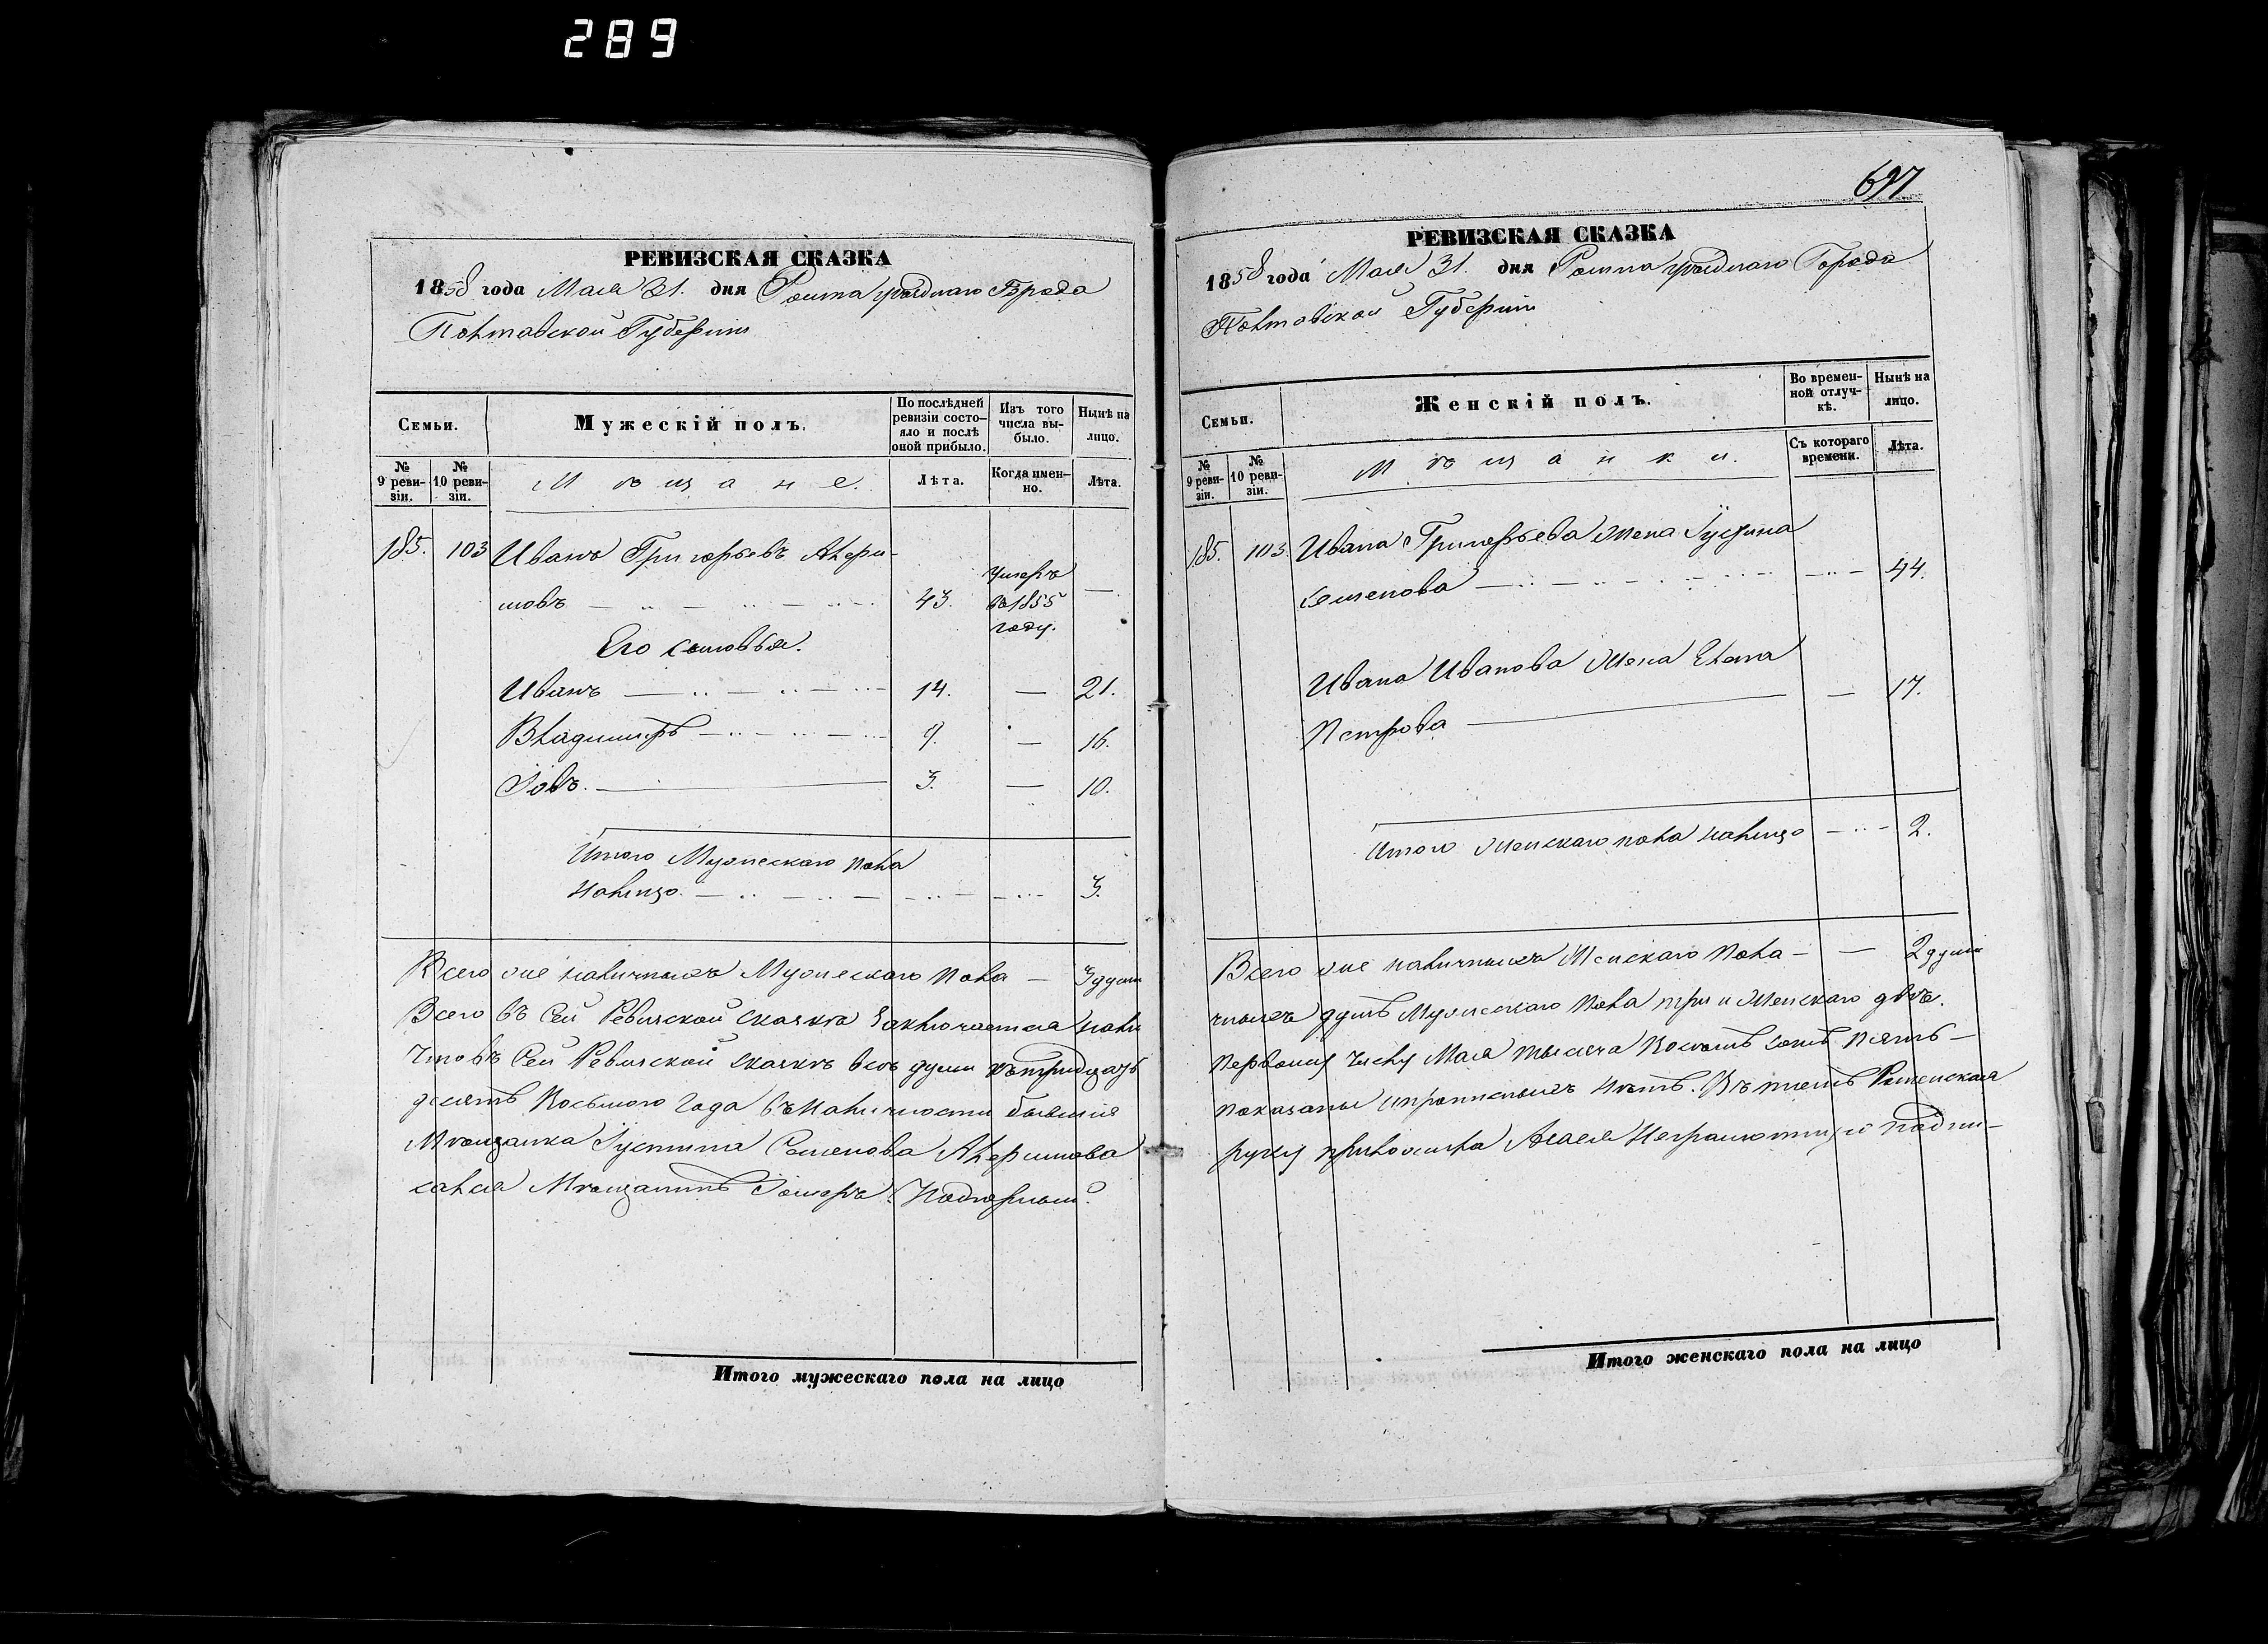 289
РЕВИЗСКАЯ СКАЗКА
1858 года Мая 31. дня Ромна уѣзднаго Города
Полтавской Губерніи
Семьи.
Мужескій полъ.
По послѣдней ревизіи состояло и послѣ оной прибыло.
Изъ того числа выбыло.
Нынѣ на лицо.
№ 9 ревизіи.
№ 10 ревизіи.
Мѣщане.
Лѣта.
Когда именно.
Лѣта.
185. 103 Иванъ Григорьевъ Алфи-
мовъ 43. Умеръ въ 1855 году. —
Его сыновья.
Иванъ 14. — 21.
Владиміръ 9. — 16.
Іовъ. 3. — 10.
Итого Мужескаго пола
налицо 3.
Всего же наличныхъ Мужескаго пола — 3 души
Всего въ сей Ревизской сказкѣ заключается нали
Что въ сей Ревизской сказкѣ всѣ души къ тридцать
десятъ Восьмого года въ наличности бывшія
Мѣщанка Іустина Семенова
сался Мѣщанинъ
Итого мужескаго пола на лицо
697
РЕВИЗСКАЯ СКАЗКА
1858 года Мая 31. дня Ромна уѣзднаго Города
Полтавской Губерніи
Семьи.
Женскій полъ.
Во временной отлучкѣ.
Нынѣ на лицо.
№ 9 ревизіи.
№ 10 ревизіи.
Мѣщанки.
Съ котораго времени.
Лѣта.
185. 103. Ивана Григорьева жена Іустина
Семенова — 44.
Ивана Иванова жена Елена
Петрова — 17.
Итого женскаго пола налицо — 2.
Всего же наличныхъ Женскаго пола — — 2 души
чныхъ душъ Мужескаго пола три и женскаго двѣ.
первому числу Мая тысяча Восемь сотъ пять-
показаны и прописныхъ нѣтъ. Въ томъ Роменская
руку приложила А за ея неграмотную подпи-
Итого женскаго пола на лицо